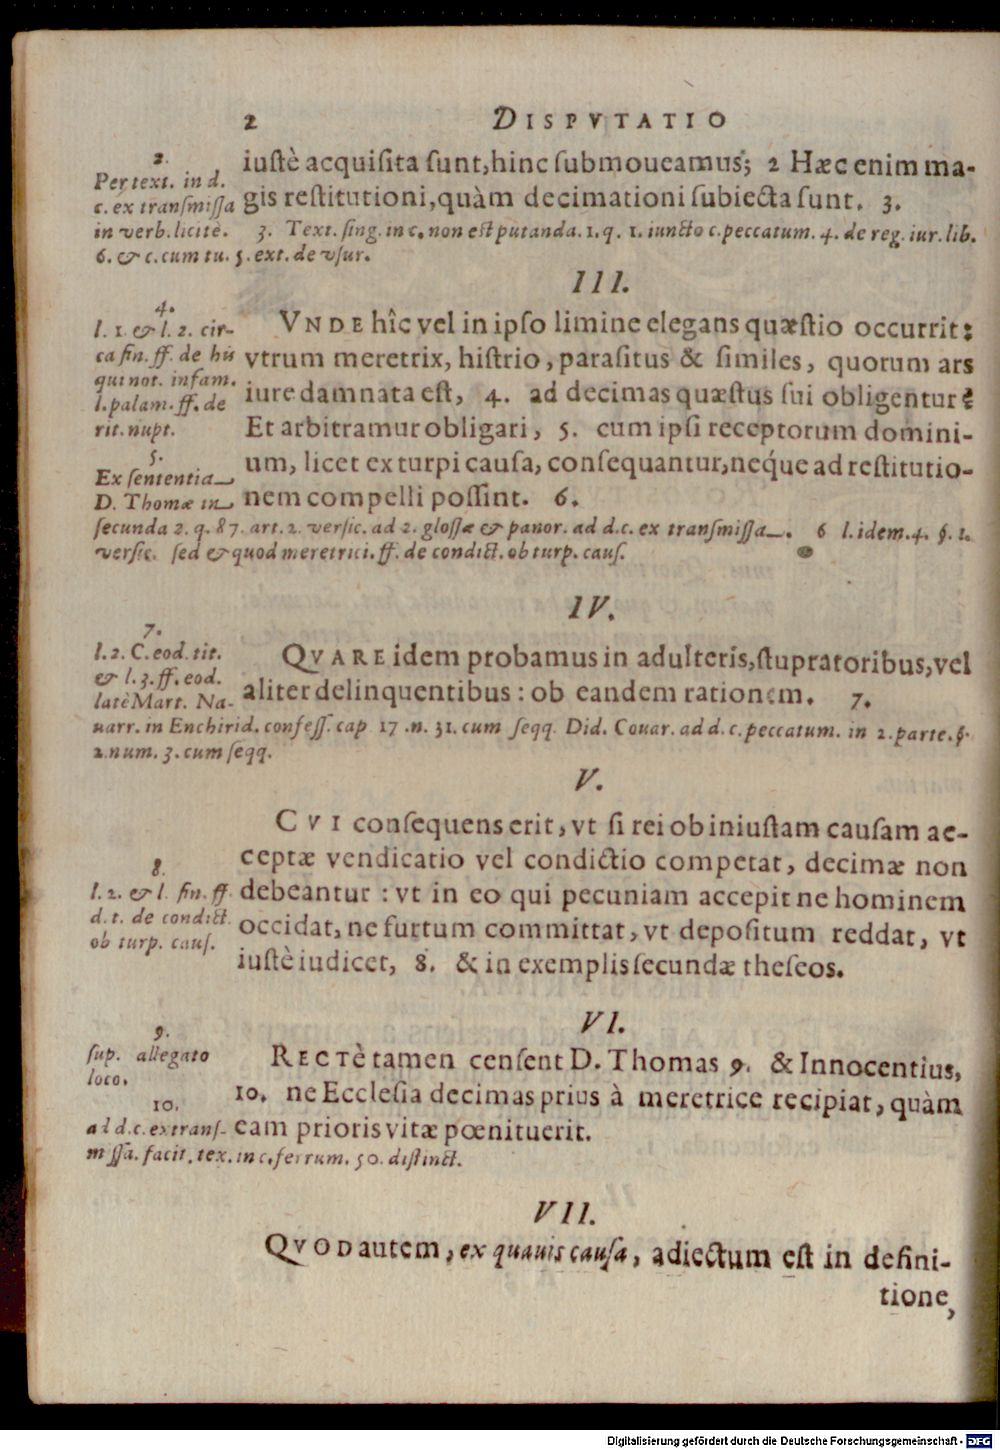 2 DISPVTATIO
iustè acquisita sunt, hinc submoueamus; 2 Hæc enim ma-
gis restitutioni, quàm decimationi subiecta sunt. 3.
2.
Per text. in d.
c. ex transmissa
in verb. licitè. 3. Text. sing. in c. non est putanda. 1. q. 1. iuncto c. peccatum. 4. de reg. iur. lib.
6. & c. cum tu. 5. ext. de vsur.
III.
VNDE hîc vel in ipso limine elegans quæstio occurrit:
vtrum meretrix, histrio, parasitus & similes, quorum ars
iure damnata est, 4. ad decimas quæstus sui obligentur?
Et arbitramur obligari, 5. cum ipsi receptorum domini-
um, licet ex turpi causa, consequantur, neq́ue ad restitutio-
nem compelli possint. 6.
4.
l. 1. & l. 2. cir-
ca fin. ff. de his
qui not. infam.
l. palam. ff. de
rit. nupt.
5.
Ex sententia
D. Thomæ in
secunda 2. q. 87. art. 2. versic. ad 2. glossæ & panor. ad d. c. ex transmissa. 6 l. idem. 4. §. 1.
versic. sed & quod meretrici. ff. de condict. ob turp. caus.
IV.
QVARE idem probamus in adulteris, stupratoribus, vel
aliter delinquentibus: ob eandem rationem. 7.
7.
l. 2. C. eod. tit.
& l. 3. ff. eod.
latè Mart. Na-
uarr. in Enchirid. confess. cap 17. n. 31. cum seqq. Did. Couar. ad d. c. peccatum. in 2. parte. §.
2. num. 3. cum seqq.
V.
CVI consequens erit, vt si rei ob iniustam causam ac-
ceptæ vendicatio vel condictio competat, decimæ non
debeantur: vt in eo qui pecuniam accepit ne hominem
occidat, ne furtum committat, vt depositum reddat, vt
iustè iudicet, 8. & in exemplis secundæ theseos.
8.
l. 2. & l. fin. ff.
d. t. de condict.
ob turp. caus.
VI.
RECTè tamen censent D. Thomas 9. & Innocentius,
10. ne Ecclesia decimas prius à meretrice recipiat, quàm
eam prioris vitæ pœnituerit.
9.
sup. allegato
loco.
10.
ad d. c. ex trans-
missa. facit. tex. in c. ferrum. 50. distinct.
VII.
QVOD autem, ex quauis causa, adiectum est in defini-
tione,
Digitalisierung gefördert durch die Deutsche Forschungsgemeinschaft - DFG